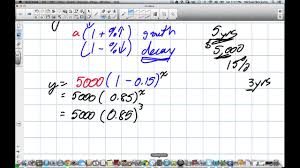 a(1 + %↑) growth
(1 - %↓) decay
5 yrs
$5,000
15%
y = 5000(1 - 0.15)^x
3 yrs
= 5000(0.85)^x
= 5000(0.85)^3